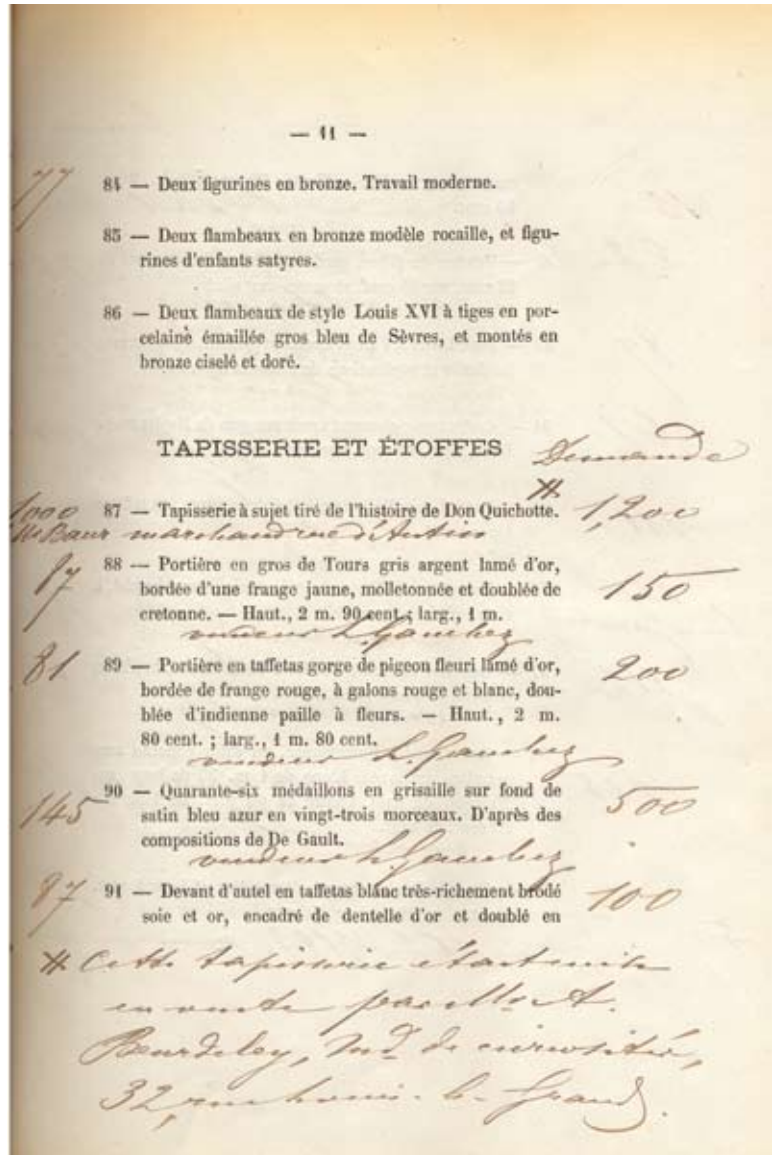 — 11 —
77 84 — Deux figurines en bronze. Travail moderne.
85 — Deux flambeaux en bronze modèle rocaille, et figu-
rines d'enfants satyres.
86 — Deux flambeaux de style Louis XVI à tiges en por-
celaine émaillée gros bleu de Sèvres, et montés en
bronze ciselé et doré.
TAPISSERIE ET ÉTOFFES Demande
#
1000 87 — Tapisserie à sujet tiré de l'histoire de Don Quichotte. 1,200
Mr Baur marchand rue d'Antin
87 88 — Portière en gros de Tours gris argent lamé d'or, 150
bordée d'une frange jaune, molletonnée et doublée de
cretonne. — Haut., 2 m. 90 cent.; larg., 1 m.
vendeur L. Gauchez
81 89 — Portière en taffetas gorge de pigeon fleuri lamé d'or, 200
bordée de frange rouge, à galons rouge et blanc, dou-
blée d'indienne paille à fleurs. — Haut., 2 m.
80 cent. ; larg., 1 m. 80 cent.
vendeur L. Gauchez
145 90 — Quarante-six médaillons en grisaille sur fond de 500
satin bleu azur en vingt-trois morceaux. D'après des
compositions de De Gault.
vendeur L. Gauchez
87 91 — Devant d'autel en taffetas blanc très-richement brodé 100
soie et or, encadré de dentelle d'or et doublé en
# Cette tapisserie était mise
en vente par Mr A.
Beurdeley, Md. de curiosités,
32, rue Louis-le-Grand.